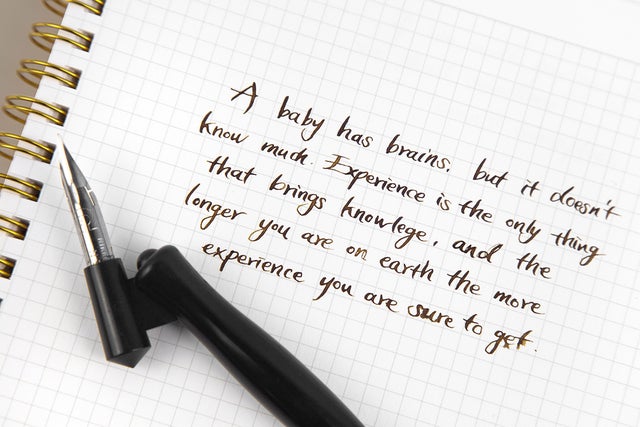 A baby has brains, but it doesn't
know much. Experience is the only thing
that brings knowlege, and the
longer you are on earth the more
experience you are sure to get.